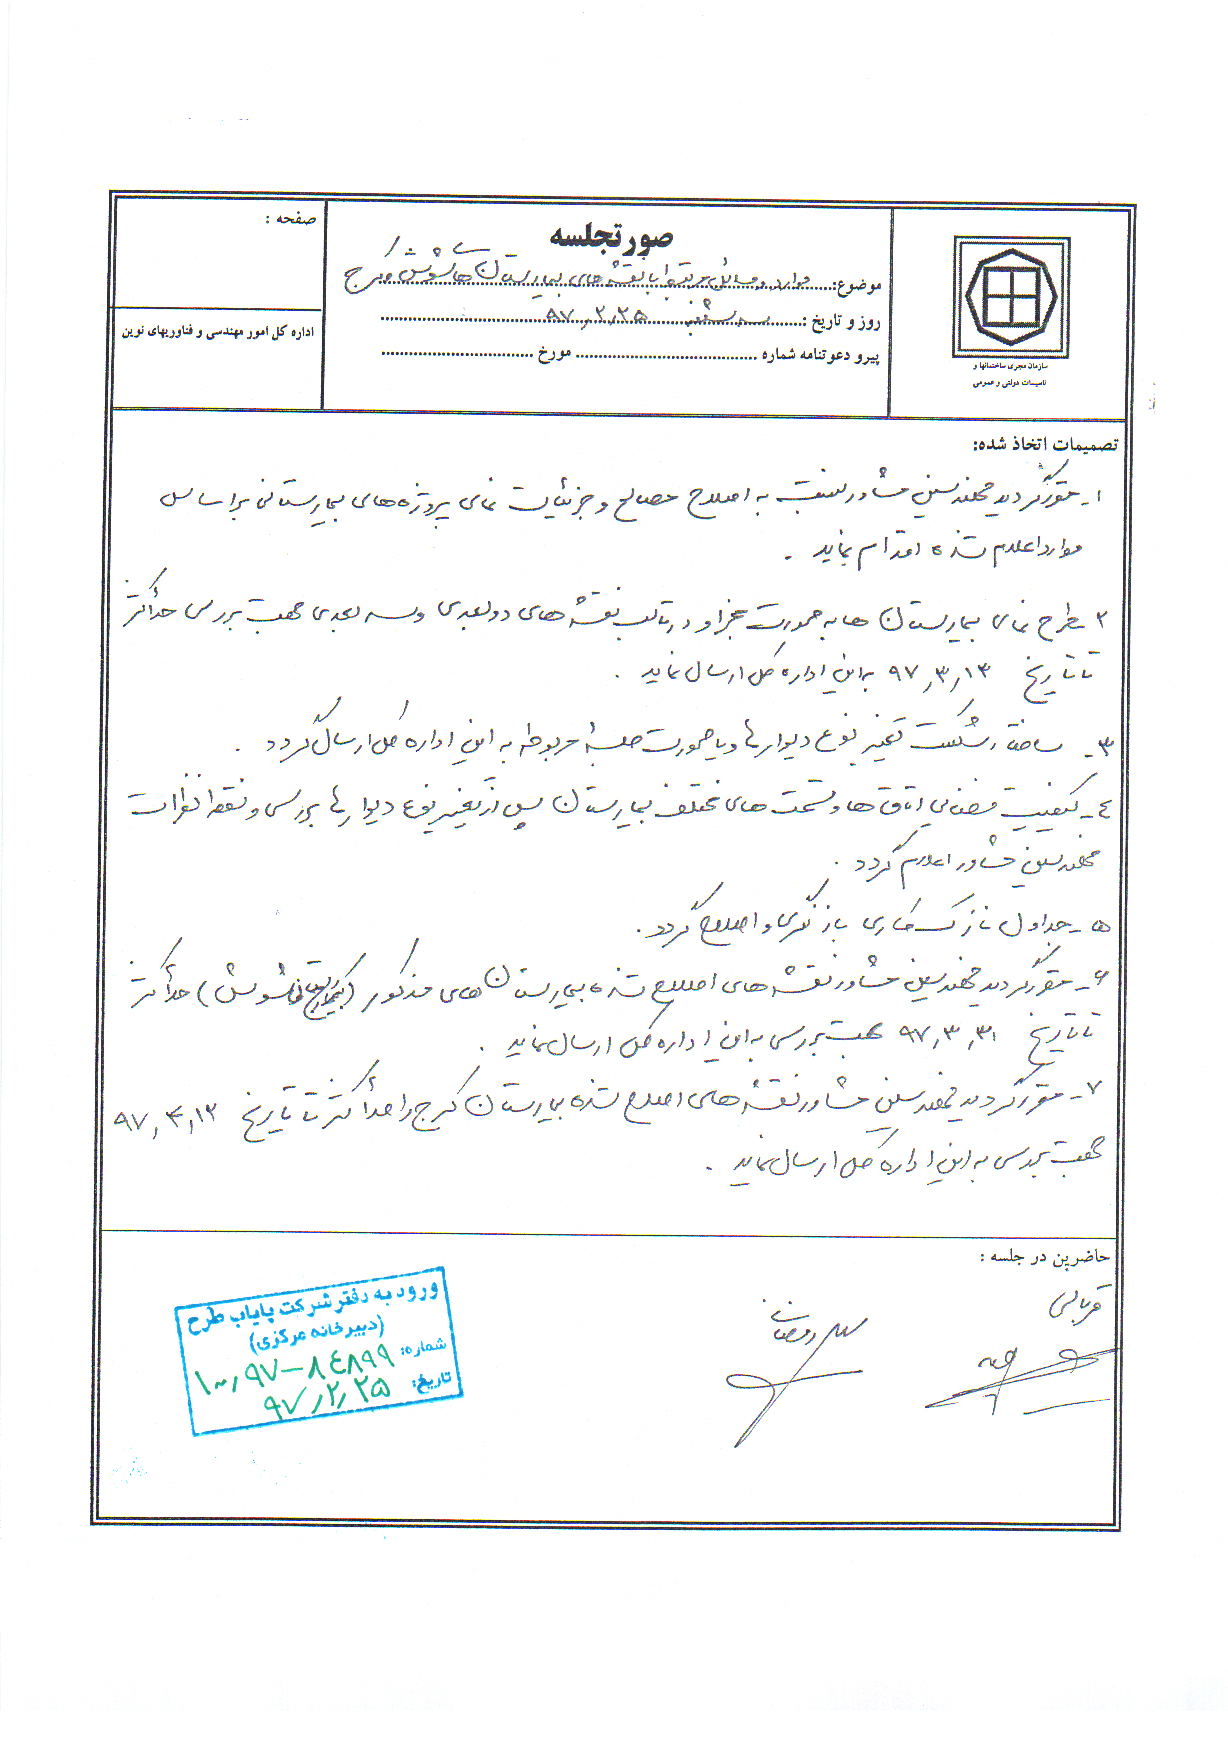 صفحه :
اداره کل امور مهندسی و فناوریهای نوین
صورتجلسه
موضوع: موارد و مسائل مرتبط با نقشه های بیمارستان های شوش و کرج
روز و تاریخ : سه شنبه ۹۷,۲,۲۵
پیرو دعوتنامه شماره مورخ
سازمان مجری ساختمانها و
تاسیسات دولتی و عمومی
تصمیمات اتخاذ شده:
۱- مقرر گردید مهندسین مشاور نسبت به اصلاح مصالح و جزئیات نمای پروژه های بیمارستانی براساس
موارد اعلام شده اقدام نماید .
۲- طرح نمای بیمارستان ها به صورت مجزا و در قالب نقشه های دو بعدی و سه بعدی جهت بررسی حداکثر
تا تاریخ ۹۷,۳,۱۳ به این اداره کل ارسال نماید .
۳- تغییر نوع دیوارها و یا صورت جلسه مربوطه به این اداره کل ارسال گردد .
٤- کیفیت فضایی اتاق ها و قسمت های مختلف بیمارستان پس از تغییر نوع دیوارها بررسی و نقطه نظرات
مهندسین مشاور اعلام گردد .
۵- جداول نازک کاری بازنگری و اصلاح گردد .
۶- مقرر گردید مهندسین مشاور نقشه های اصلاح شده بیمارستان های مذکور ( شوش ) حداکثر
تا تاریخ ۹۷,۳,۳۱ جهت بررسی به این اداره کل ارسال نماید .
۷- مقرر گردید مهندسین مشاور نقشه های اصلاح شده بیمارستان کرج را حداکثر تا تاریخ ۹۷,۴,۱۳
جهت بررسی به این اداره کل ارسال نماید .
حاضرین در جلسه :
قربانی
رمضان
ورود به دفتر شرکت پایاب طرح
(دبیرخانه مرکزی)
شماره: ۱۰۰,۹۷-۸٤۸۹۹
تاریخ: ۹۷,۲,۲۵